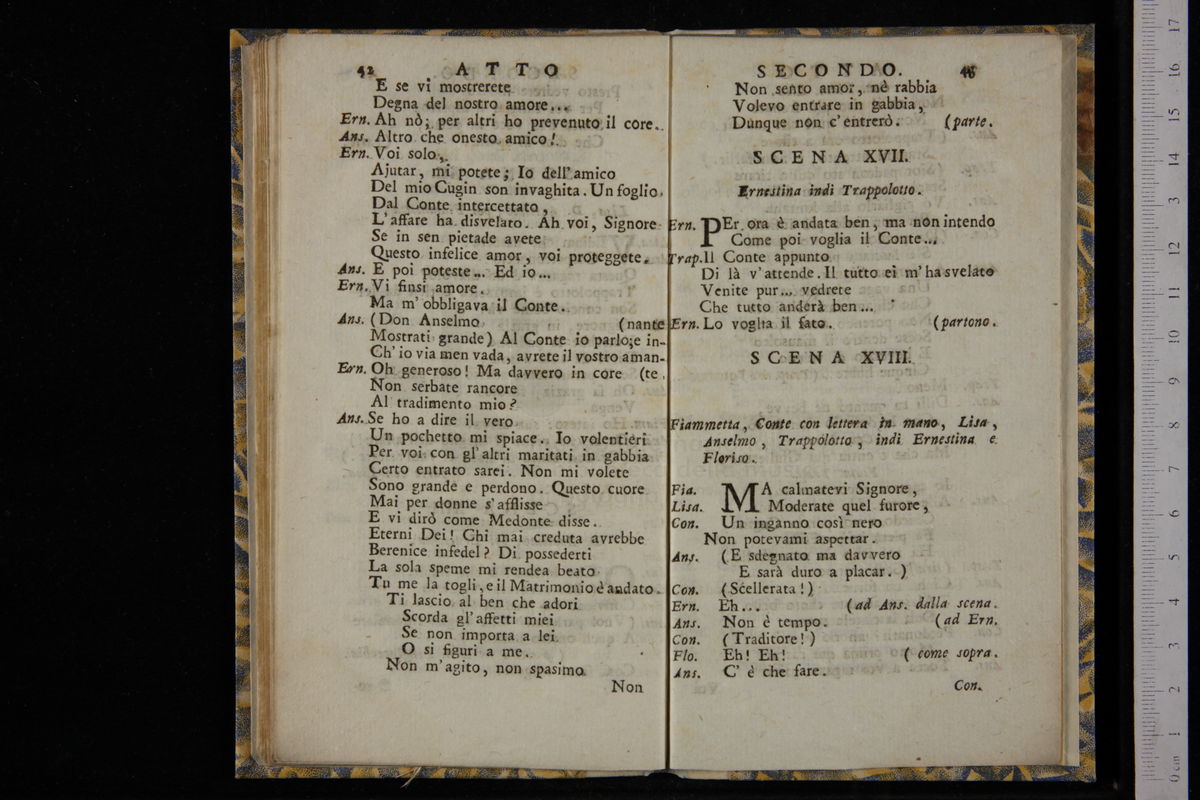 42 ATTO
E se vi mostrerete
Degna del nostro amore...
Ern. Ah nò; per altri ho prevenuto il core.
Ans. Altro che onesto amico!
Ern. Voi solo,
Ajutar, mi potete; Io dell'amico
Del mio Cugin son invaghita. Un foglio
Dal Conte intercettato,
L'affare ha disvelato. Ah voi, Signore
Se in sen pietade avete
Questo infelice amor, voi proteggete.
Ans. E poi poteste... Ed io...
Ern. Vi finsi amore.
Ma m'obbligava il Conte.
Ans. (Don Anselmo (nante
Mostrati grande) Al Conte io parlo; e in-
Ch'io via men vada, avrete il vostro aman-
Ern. Oh generoso! Ma davvero in core (te.
Non serbate rancore
Al tradimento mio?
Ans. Se ho a dire il vero
Un pochetto mi spiace. Io volentieri
Per voi con gl'altri maritati in gabbia
Certo entrato sarei. Non mi volete
Sono grande e perdono. Questo cuore
Mai per donne s'afflisse
E vi dirò come Medonte disse.
Eterni Dei! Chi mai creduta avrebbe
Berenice infedel? Di possederti
La sola speme mi rendea beato
Tu me la togli, e il Matrimonio è andato.
Ti lascio al ben che adori
Scorda gl'affetti miei
Se non importa a lei
O si figuri a me.
Non m'agito, non spasimo
Non
SECONDO.
Non sento amor, nè rabbia
Volevo entrare in gabbia,
Dunque non c'entrerò. (parte.
SCENA XVII.
Ernestina indi Trappolotto.
Ern. PEr ora è andata ben, ma non intendo
Come poi voglia il Conte...
Trap. Il Conte appunto
Di là v'attende. Il tutto ei m'ha svelato
Venite pur... vedrete
Che tutto anderà ben...
Ern. Lo voglia il fato. (partono.
SCENA XVIII.
Fiammetta, Conte con lettera in mano, Lisa,
Anselmo, Trappolotto, indi Ernestina e
Floriso.
Fia. MA calmatevi Signore,
Lisa. Moderate quel furore,
Con. Un inganno così nero
Non potevami aspettar.
Ans. (E sdegnato ma davvero
E sarà duro a placar.)
Con. (Scellerata!)
Ern. Eh... (ad Ans. dalla scena.
Ans. Non è tempo. (ad Ern.
Con. (Traditore!)
Flo. Eh! Eh! (come sopra.
Ans. C'è che fare.
Con.